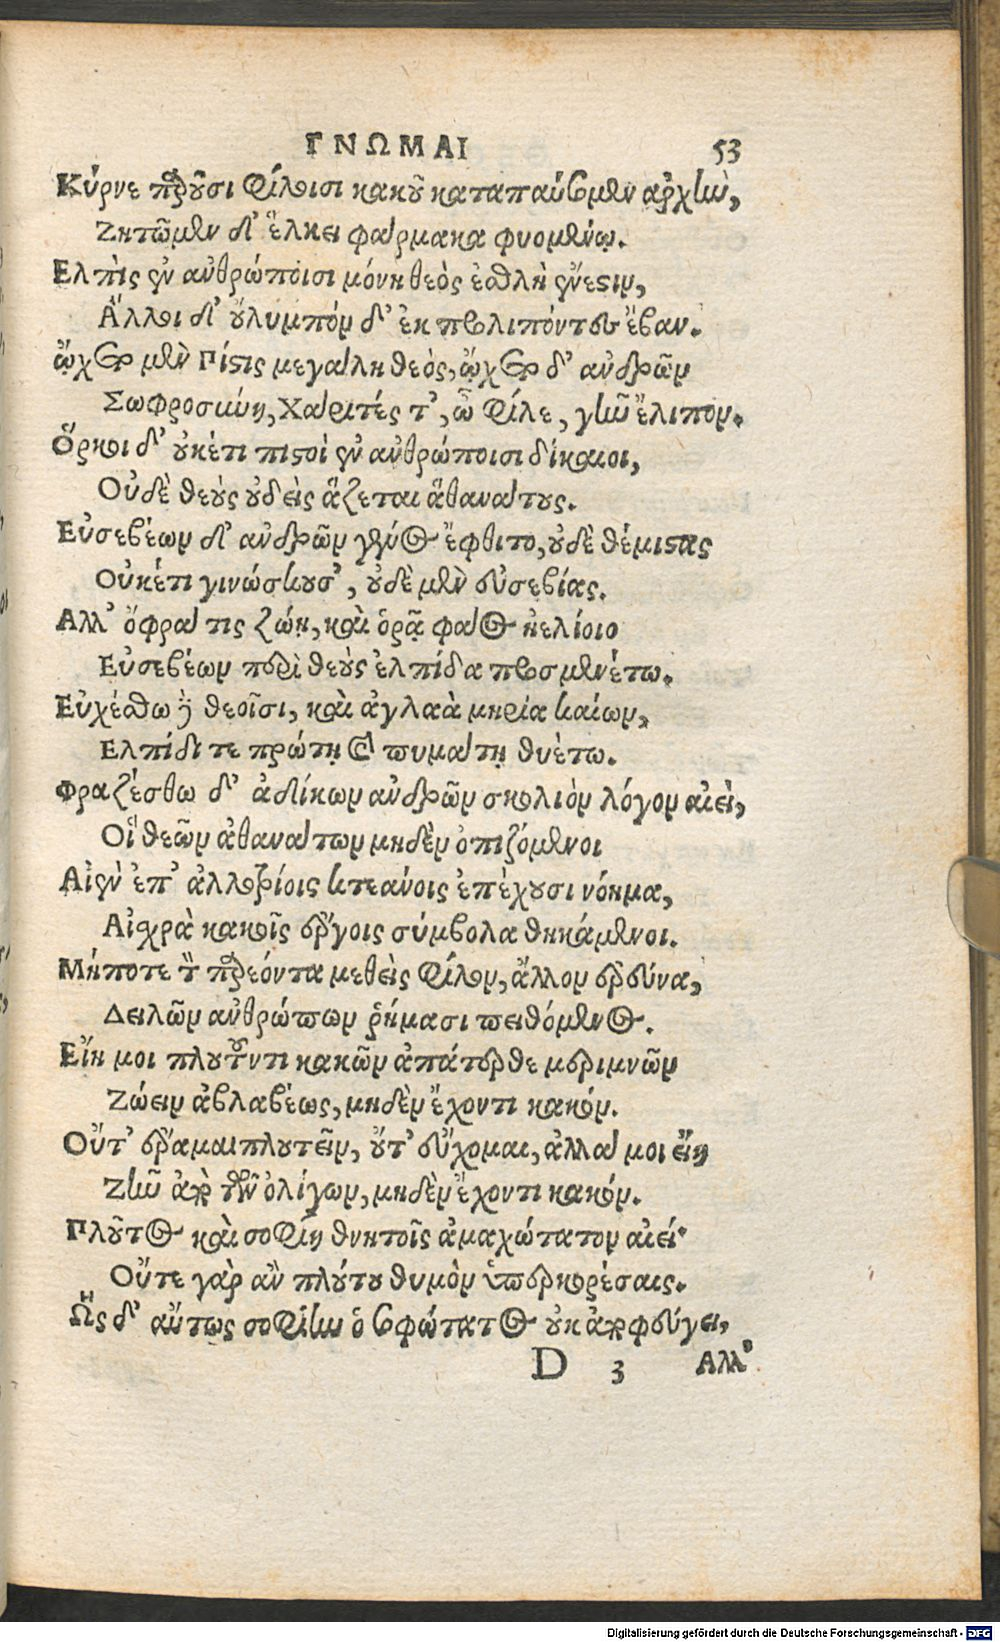 ΓΝΩΜΑΙ 53
Κύρνε παρȣ͂σι φίλοισι κακȣ͂ καταπαύσομεν ἀρχὴν,
Ζητῶμεν δ' ἕλκει φάρμακα φυομένῳ.
Ελπὶς ἐν ἀνθρώποισι μόνη θεὸς ἐσθλὴ ἔνεστιν,
Ἄλλοι δ' ȣ̓́λυμπόν δ' ἐκπρολιπόντες ἔβαν.
ᾤχετο μὲν Πίστις μεγάλη θεὸς, ᾤχετο δ' ἀνδρῶν
Σωφροσύνη, Χάριτές τ', ὦ φίλε, γῆν ἔλιπον.
Ὅρκοι δ' ȣ̓κέτι πιστοὶ ἐν ἀνθρώποισι δίκαιοι,
Οὐδὲ θεȣ̀ς ȣ̓δεὶς ἅζεται ἀθανάτȣς.
Εὐσεβέων δ' ἀνδρῶν γένος ἔφθιτο, ȣ̓δὲ θέμιστας
Οὐκέτι γινώσκȣσ', ȣ̓δὲ μὲν εὐσεβίας.
Αλλ' ὄφρα τις ζώῃ, καὶ ὁρᾷ φάος ἠελίοιο
Εὐσεβέων περὶ θεȣ̀ς ἐλπίδα προσμενέτω.
Εὐχέσθω δὲ θεοῖσι, καὶ ἀγλαὰ μηρία καίων,
Ελπίδι τε πρώτῃ καὶ πυμάτῃ θυέτω.
Φραζέσθω δ' ἀδίκων ἀνδρῶν σκολιὸν λόγον αἰεὶ,
Οἳ θεῶν ἀθανάτων μηδὲν ὀπιζόμενοι
Αἰὲν ἐπ' ἀλλοτρίοις κτεάνοις ἐπέχȣσι νόημα,
Αἰσχρὰ κακοῖς ἔργοις σύμβολα θηκάμενοι.
Μήποτε τὸν παρεόντα μεθεὶς φίλον, ἄλλον ἐρεύνα,
Δειλῶν ἀνθρώπων ῥήμασι πειθόμενος.
Εἴη μοι πλȣτȣ͂ντι κακῶν ἀπάτερθε μεριμνῶν
Ζώειν ἀβλαβέως, μηδὲν ἔχοντι κακόν.
Οὔτ' ἔραμαι πλȣτεῖν, ȣ̓́τ' εὔχομαι, ἀλλά μοι εἴη
Ζῆν ἀπὸ τῶν ὀλίγων, μηδὲν ἔχοντι κακόν.
Πλȣ͂τος καὶ σοφίη θνητοῖς ἀμαχώτατον αἰεί·
Οὔτε γὰρ ἂν πλȣ́τȣ θυμὸν ὑπερκορέσαις.
Ὣς δ' αὔτως σοφίην ὁ σοφώτατος ȣ̓κ ἀποφεύγει,
D 3 Αλλ'
Digitalisierung gefördert durch die Deutsche Forschungsgemeinschaft - DFG